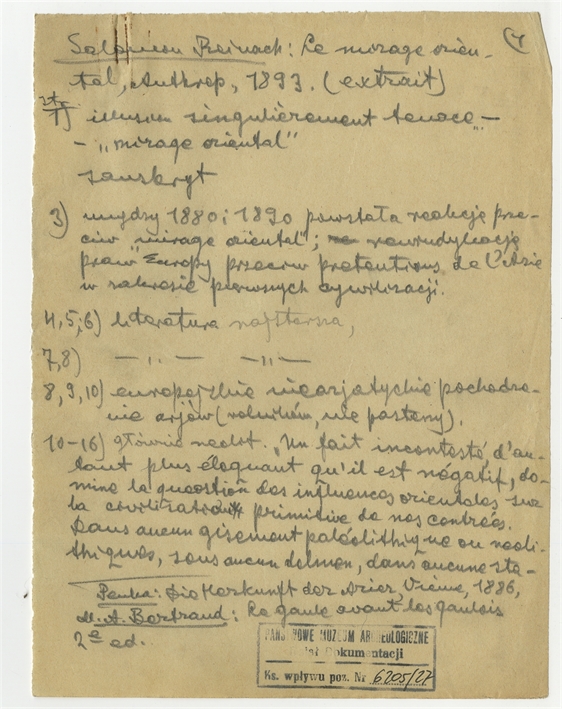 4
Salomon Reinach: Le mirage orien-
tal, Anthrop, 1893. (extrait)
str.
1) illusion singulièrement tenace –
– „mirage oriental"
sanskryt
3) między 1880 i 1890 powstała reakcja prze-
ciw „mirage oriental"; rewindykacje
praw Europy przeciw pretentions de l'Asie
w zakresie pierwszych cywilizacji.
4, 5, 6) literatura najstarsza,
7, 8) — „ — — „ —
8, 9, 10) europejskie nieazjatyckie pochodze-
nie arjów (rolników, nie pasterzy).
10–16) głównie neolit. „Un fait incontesté, d'au-
tant plus éloquant qu'il est négatif, do-
mine la question des influences orientales sur
la civilisation primitive de nos contrées.
Dans aucun gisement paléolithique ou neoli-
thiques, sous aucun dolmen, dans aucune sta-
Penka: Die Herkunft der Arier, Vienne, 1886,
M. A. Bertrand: Le gaule avant les gaulois
2e ed.
PAŃSTWOWE MUZEUM ARCHEOLOGICZNE
Dział Dokumentacji
Ks. wpływu poz. Nr 6205/27